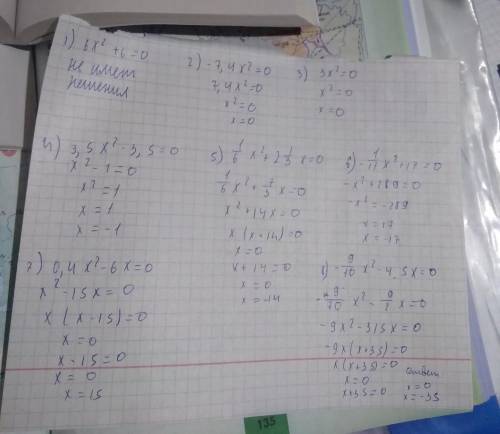 1) 8x² + 6 = 0
не имет
решения
2) -7,4x² = 0
7,4x² = 0
x² = 0
x = 0
3) 3x² = 0
x² = 0
x = 0
4) 3,5x² - 3,5 = 0
x² - 1 = 0
x² = 1
x = 1
x = -1
5) 1/6 x² + 2 1/3 x = 0
1/6 x² + 7/3 x = 0
x² + 14x = 0
x (x + 14) = 0
x = 0
x + 14 = 0
x = 0
x = -14
6) -1/17 x² + 17 = 0
-x² + 289 = 0
-x² = -289
x = 17
x = -17
7) 0,4x² - 6x = 0
x² - 15x = 0
x (x - 15) = 0
x = 0
x - 15 = 0
x = 0
x = 15
8) -9/70 x² - 4,5x = 0
-9/70 x² - 9/2 x = 0
-9x² - 315x = 0
-9x (x + 35) = 0
x (x + 35) = 0
x = 0
x + 35 = 0
ответ
x = 0
x = -35
135